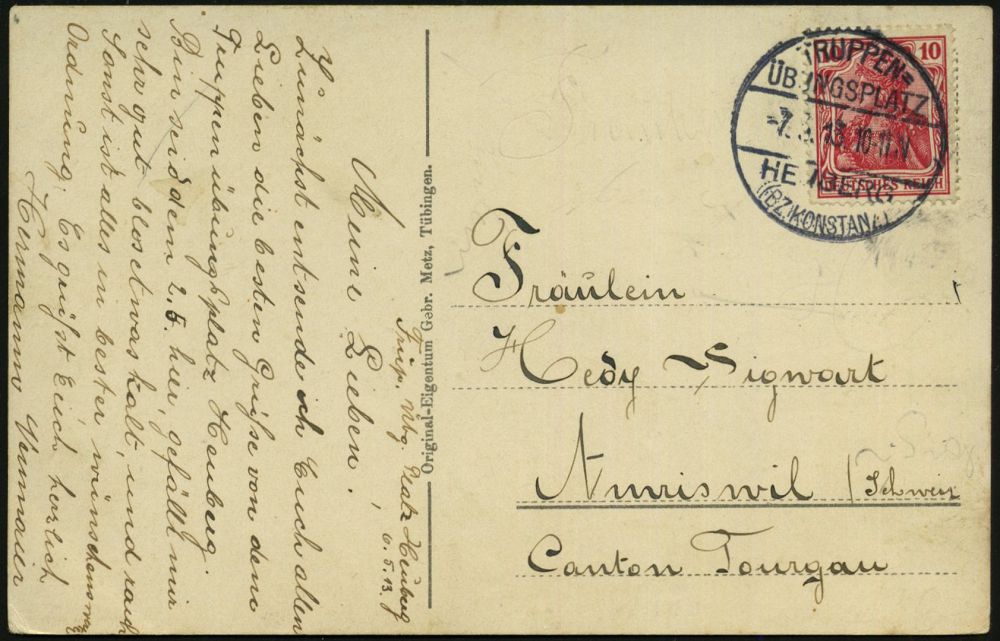 Trup. Übg. Platz Heuberg
6. 5. 13.
Meine Lieben!
Zunächst entsende ich Euch allen
Lieben die besten Grüße von dem
Truppenübungsplatz Heuberg.
Bin seid dem 2.5. hier, gefällt mir
sehr gut blos etwas kalt, und rauh
Sonst ist alles in bester
Ordnung. Es grüßt Euch herzlich
Hermann
Original-Eigentum Gebr. Metz, Tübingen.
10
DEUTSCHES REICH
TRUPPEN=
ÜBUNGSPLATZ
-7. 5. 13. 10-11.V
HEUBERG
(BZ. KONSTANZ)
Fräulein
Hedy Sigwart
Amriswil /Schweiz
Canton Tourgau